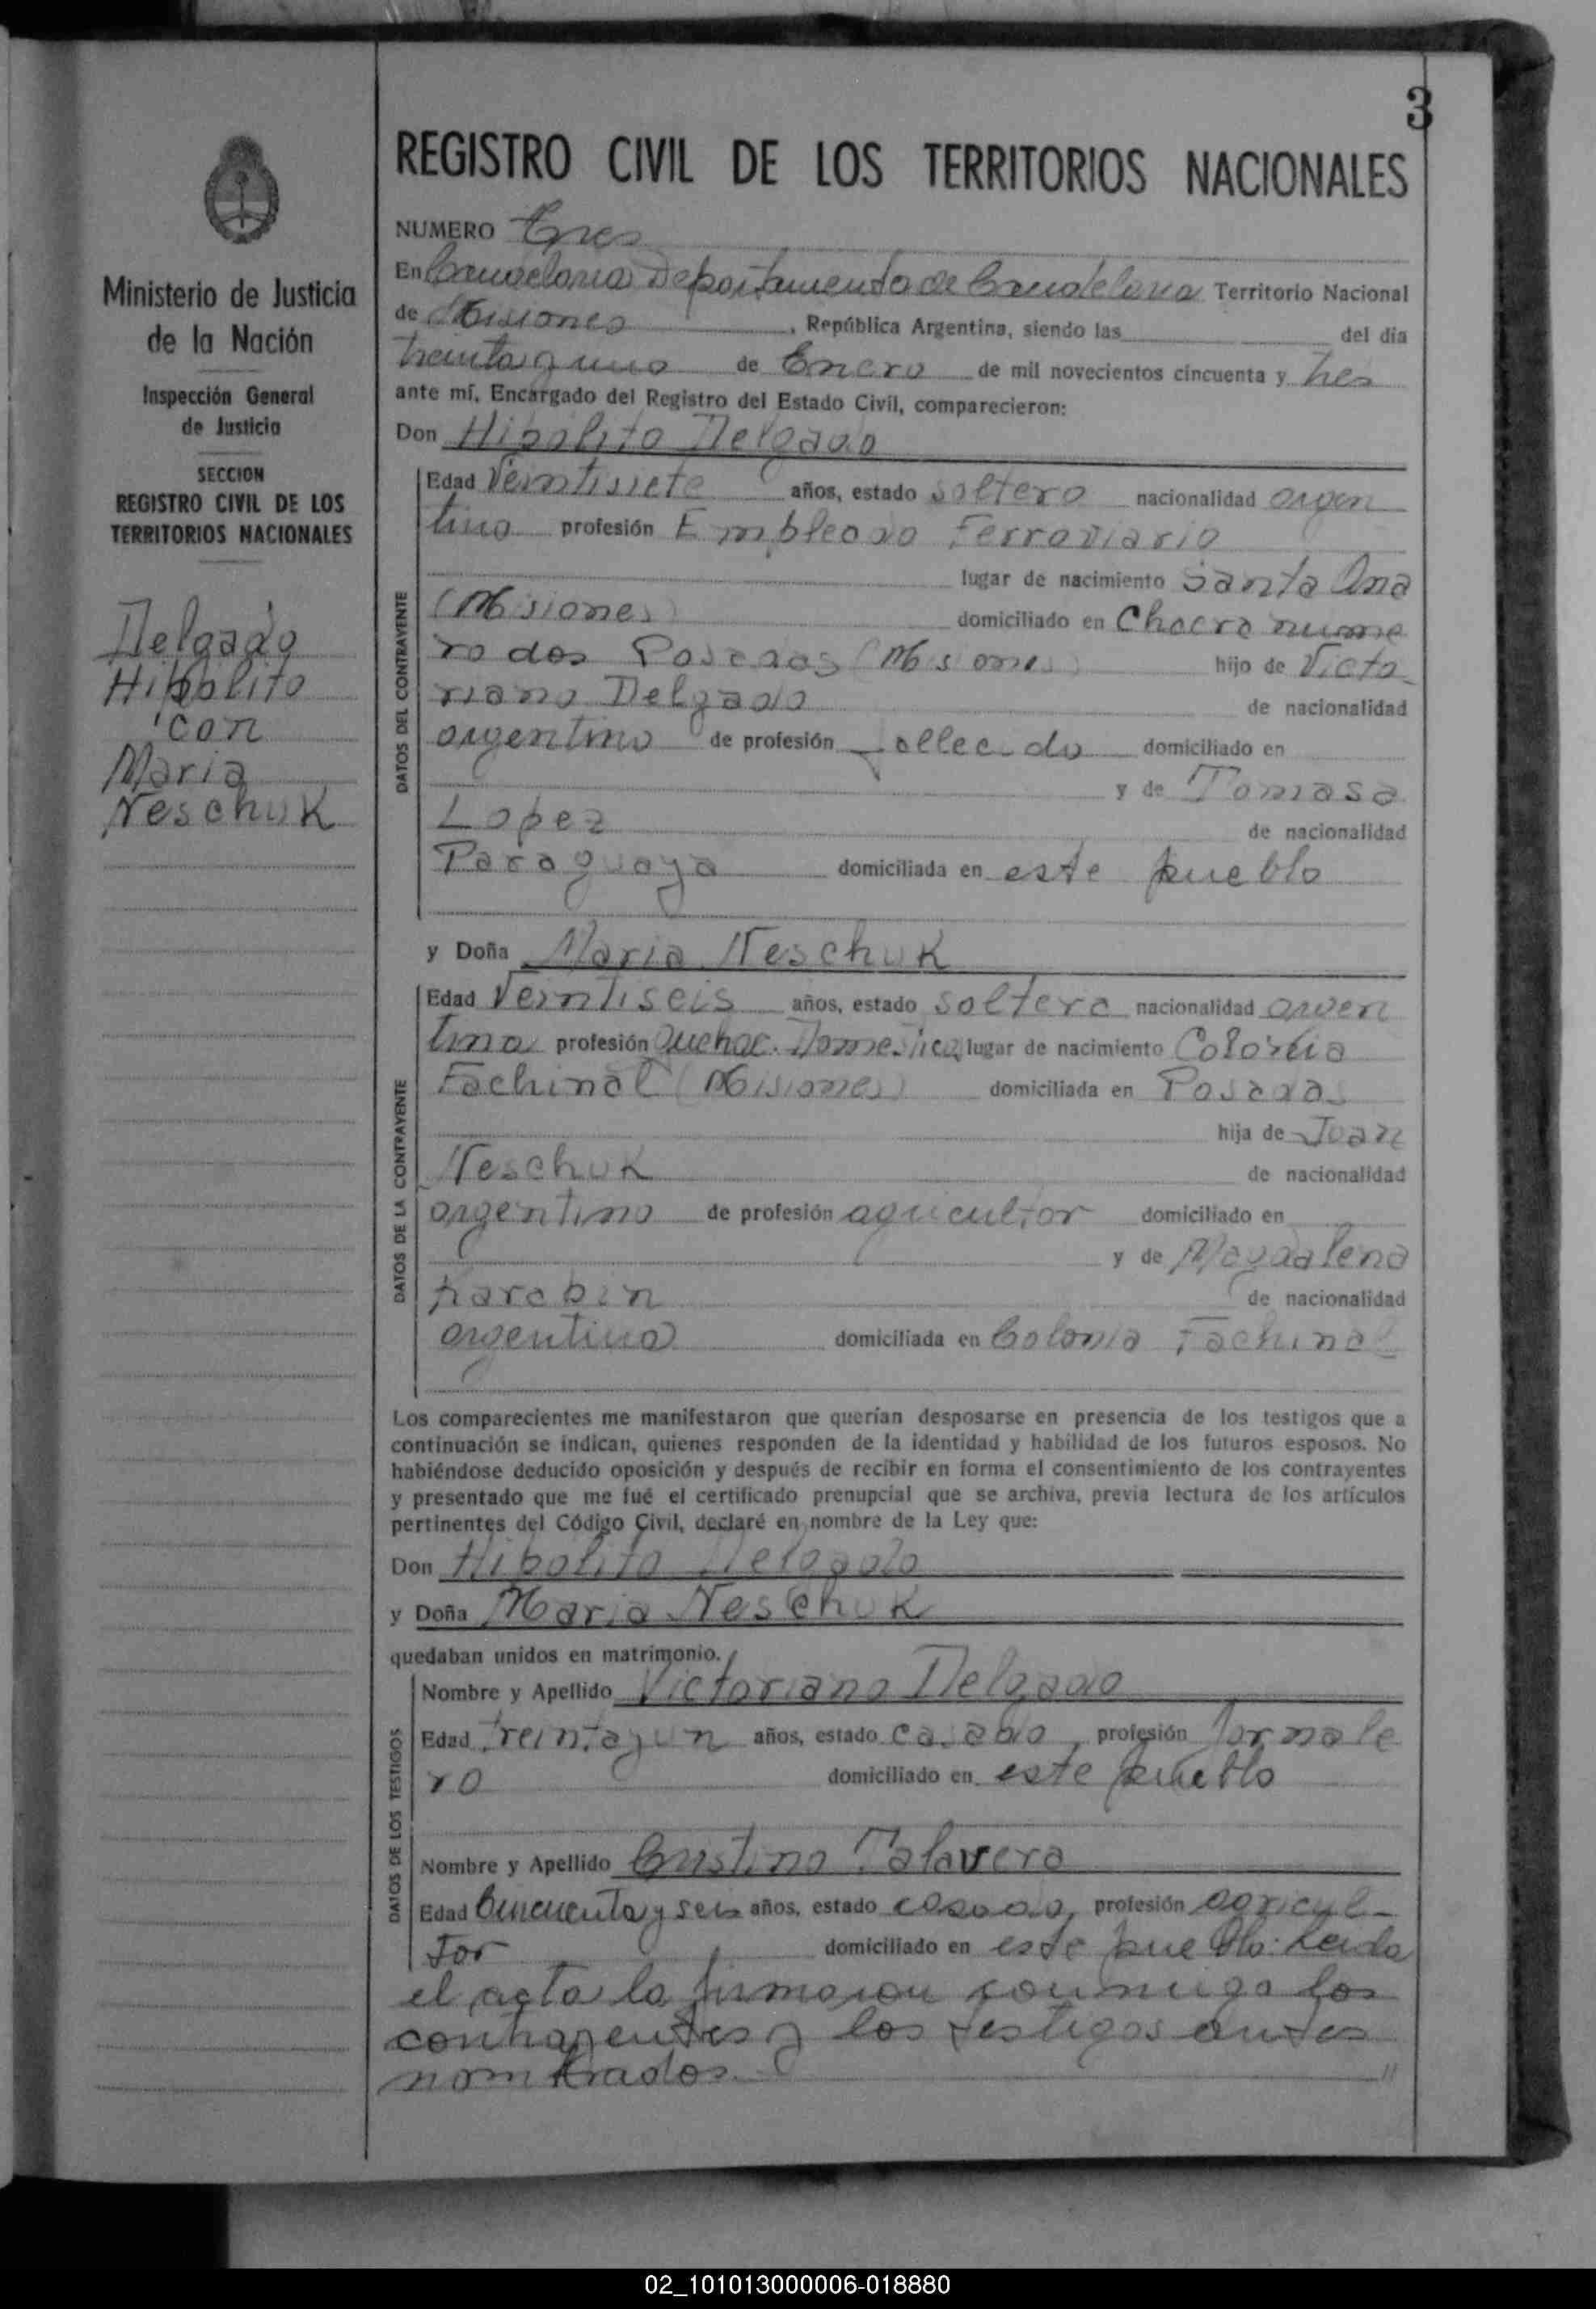 3
REGISTRO CIVIL DE LOS TERRITORIOS NACIONALES
Ministerio de Justicia
de la Nación
Inspección General
de Justicia
SECCION
REGISTRO CIVIL DE LOS
TERRITORIOS NACIONALES
Delgado
Hipolito
con
Maria
Neschuk
NUMERO tres
En Candelaria Departamento de Candelaria Territorio Nacional
de Misiones, República Argentina, siendo las del día
treinta y uno de Enero de mil novecientos cincuenta y tres
ante mí, Encargado del Registro del Estado Civil, comparecieron:
Don Hipolito Delgado
DATOS DEL CONTRAYENTE
Edad Veintisiete años, estado soltero nacionalidad argen
tino profesión Empleado Ferroviario
lugar de nacimiento Santa Ana
(Misiones) domiciliado en Chacra nume
ro dos Posadas (Misiones) hijo de Victo
riano Delgado de nacionalidad
argentino de profesión fallecido domiciliado en
y de Tomasa
Lopez de nacionalidad
Paraguaya domiciliada en este pueblo
y Doña Maria Neschuk
DATOS DE LA CONTRAYENTE
Edad Veintiseis años, estado soltera nacionalidad argen
tina profesión Quehac. Domestica lugar de nacimiento Colonia
Fachinal (Misiones) domiciliada en Posadas
hija de Juan
Neschuk de nacionalidad
argentino de profesión agricultor domiciliado en
y de Magdalena
de nacionalidad
argentina domiciliada en Colonia Fachinal
Los comparecientes me manifestaron que querían desposarse en presencia de los testigos que a
continuación se indican, quienes responden de la identidad y habilidad de los futuros esposos. No
habiéndose deducido oposición y después de recibir en forma el consentimiento de los contrayentes
y presentado que me fué el certificado prenupcial que se archiva, previa lectura de los artículos
pertinentes del Código Civil, declaré en nombre de la Ley que:
Don Hipolito Delgado
y Doña Maria Neschuk
quedaban unidos en matrimonio.
DATOS DE LOS TESTIGOS
Nombre y Apellido Victoriano Delgado
Edad treintayun años, estado casado, profesión Jornale
ro domiciliado en este pueblo
Nombre y Apellido Cristino Talavera
Edad Cincuenta y seis años, estado casado, profesión agricul-
tor domiciliado en este pueblo. Leida
el acta la firmaron conmigo los
contrayentes y los testigos antes
nombrados.
02_101013000006-018880